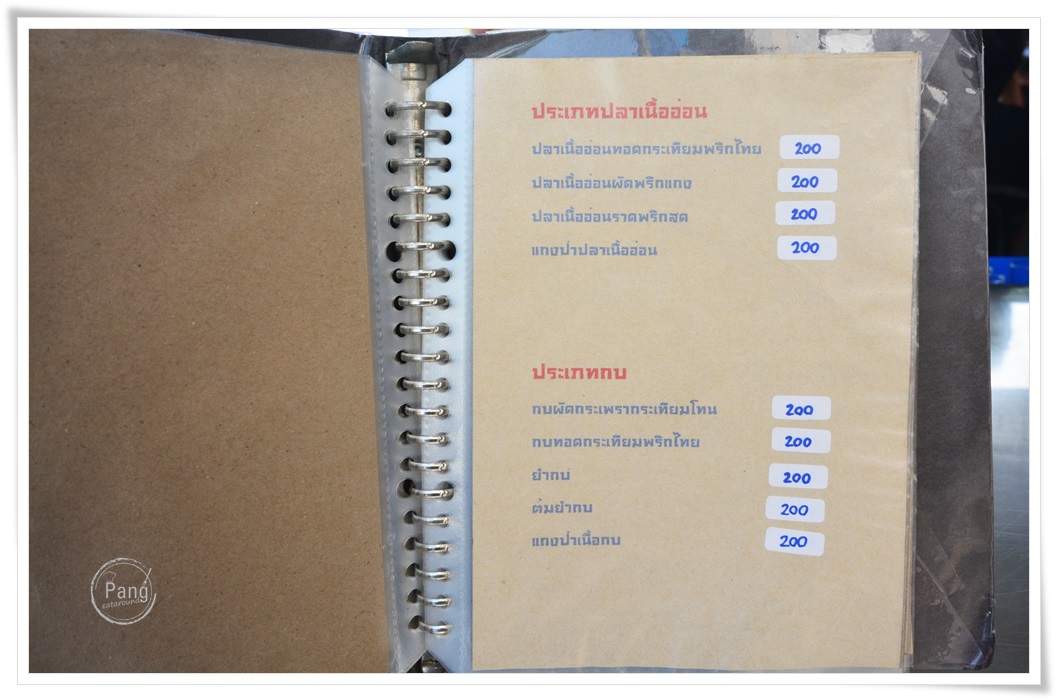 ประเภทปลาเนื้ออ่อน
ปลาเนื้ออ่อนทอดกระเทียมพริกไทย 200
ปลาเนื้ออ่อนผัดพริกแกง 200
ปลาเนื้ออ่อนราดพริกสด 200
แกงป่าปลาเนื้ออ่อน 200
ประเภทกบ
กบผัดกระเพรากระเทียมโทน 200
กบทอดกระเทียมพริกไทย 200
ยำกบ 200
ต้มยำกบ 200
แกงป่าเนื้อกบ 200
Pang
eataround